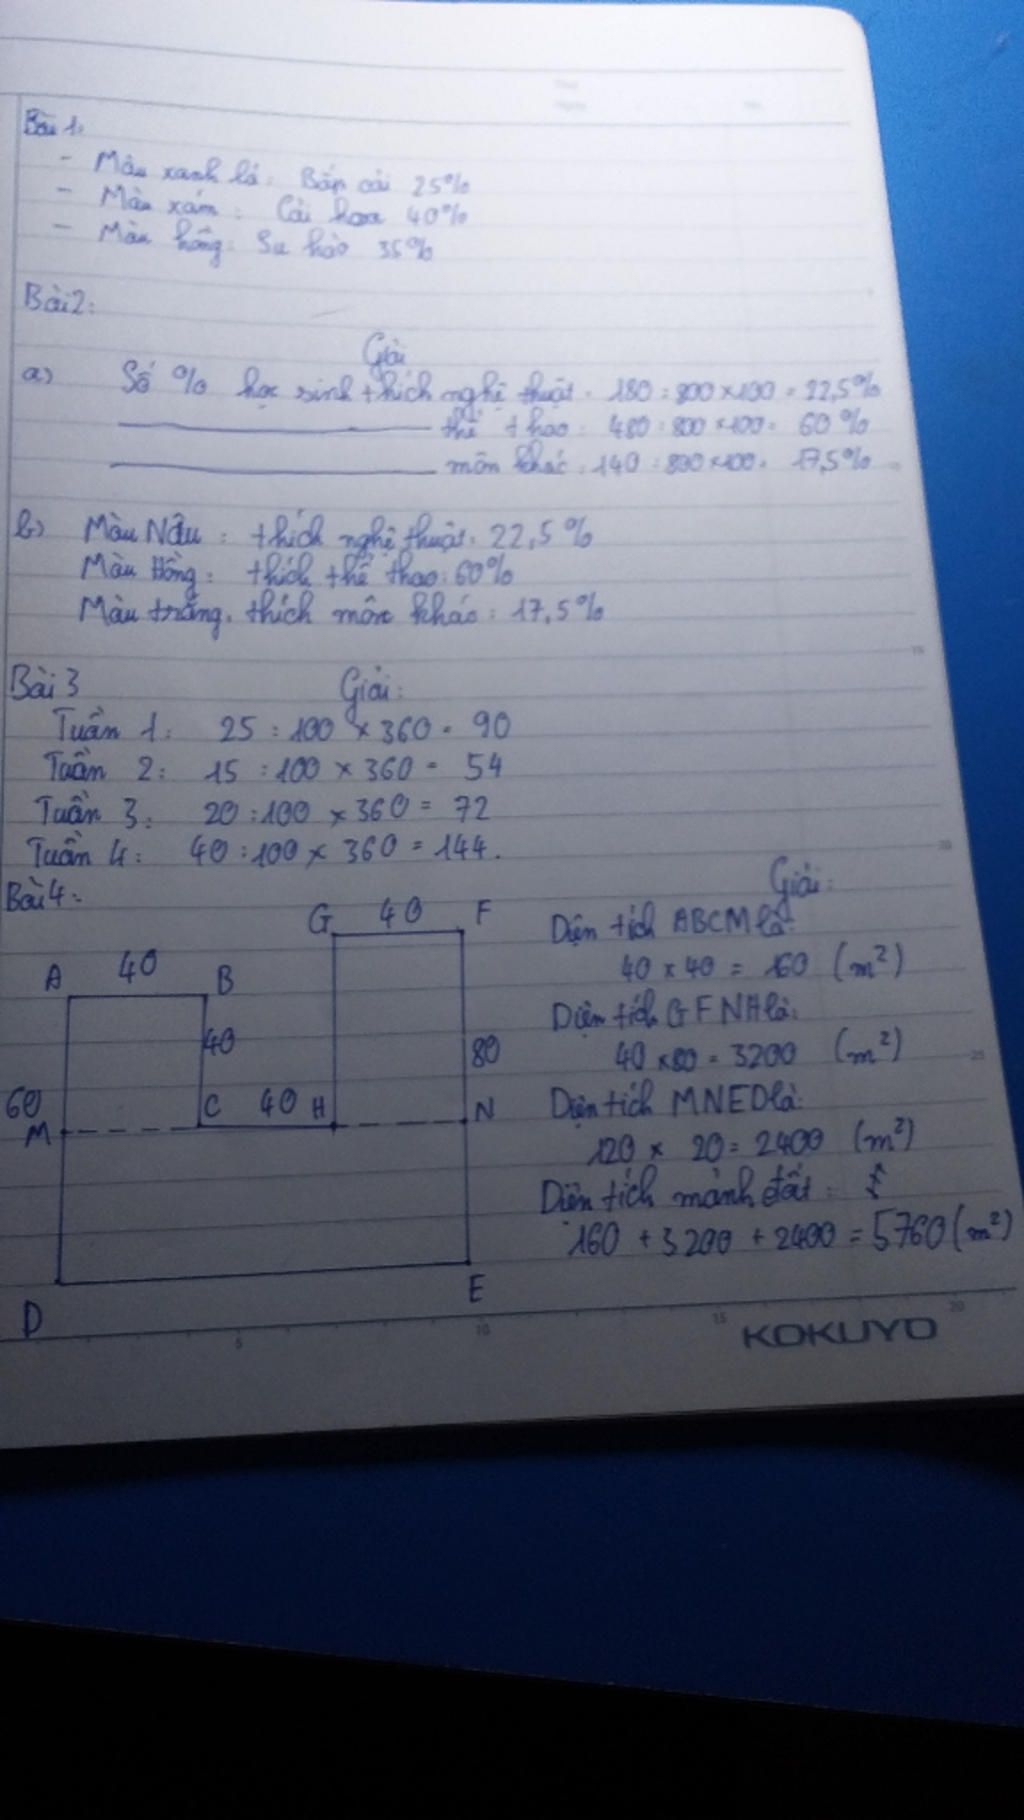 Bài 1:
- Màu xanh lá: Bắp cải 25%
- Màu xám: Cải hoa 40%
- Màu hồng: Su hào 35%
Bài 2:
Giải
a) Số % học sinh thích nghệ thuật: 180 : 800 x 100 = 22,5%
thể thao: 480 : 800 x 100 = 60%
môn khác: 140 : 800 x 100 = 17,5%
b) Màu Nâu: thích nghệ thuật: 22,5%
Màu Hồng: thích thể thao: 60%
Màu trắng: thích môn khác: 17,5%
Bài 3 Giải:
Tuần 1: 25 : 100 x 360 = 90
Tuần 2: 15 : 100 x 360 = 54
Tuần 3: 20 : 100 x 360 = 72
Tuần 4: 40 : 100 x 360 = 144.
Bài 4:
G 40 F
A 40 B
40
80
60
M C 40 H N
D E
Giải:
Diện tích ABCM là:
40 x 40 = 160 (m²)
Diện tích GFNH là:
40 x 80 = 3200 (m²)
Diện tích MNED là:
120 x 20 = 2400 (m²)
Diện tích mảnh đất:
160 + 3200 + 2400 = 5760 (m²)
5 10 15 20
KOKUYO